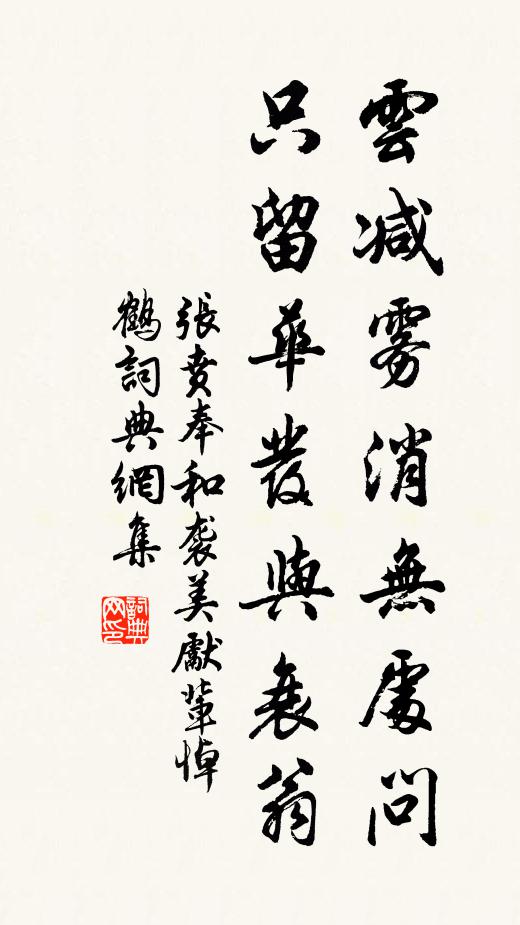 雲減霧消無處問
只留華發與衰翁
張賁奉和袭美獻輩悼
鶴詞典網集
詞典网印